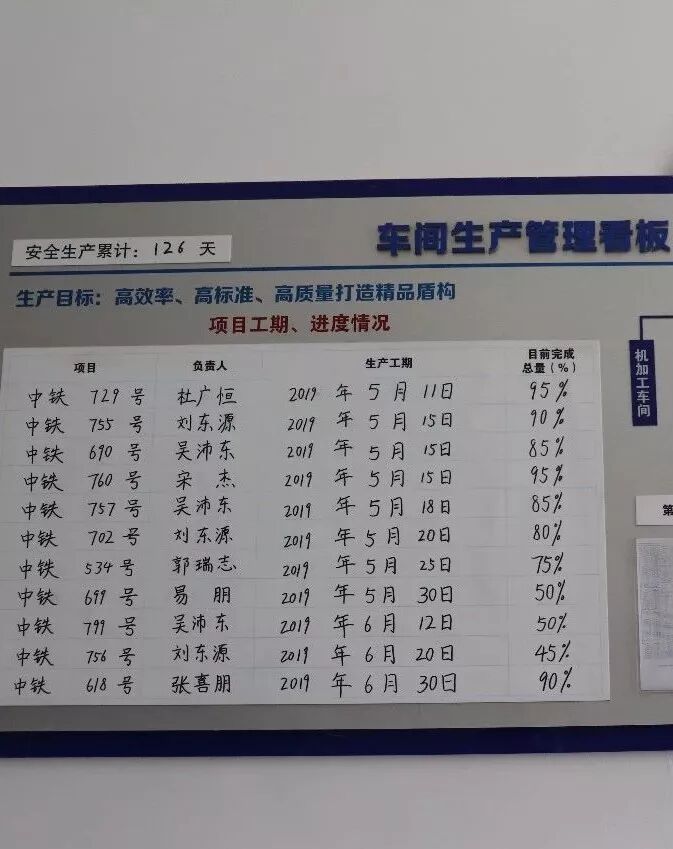 安全生产累计：126 天
车间生产管理看板
生产目标：高效率、高标准、高质量打造精品盾构
项目工期、进度情况
项目 负责人 生产工期 目前完成总量（%）
中铁 729 号 杜广恒 2019 年 5 月 11日 95%
中铁 755 号 刘东源 2019 年 5 月 15日 90%
中铁 690 号 吴沛东 2019 年 5 月 15日 85%
中铁 760 号 宋 杰 2019 年 5 月 15日 95%
中铁 757 号 吴沛东 2019 年 5 月 18日 85%
中铁 702 号 刘东源 2019 年 5 月 20日 80%
中铁 534 号 郭瑞志 2019 年 5 月 25日 75%
中铁 699 号 易 朋 2019 年 5 月 30日 50%
中铁 799 号 吴沛东 2019 年 6 月 12日 50%
中铁 756 号 刘东源 2019 年 6 月 20日 45%
中铁 618 号 张喜朋 2019 年 6 月 30日 90%
机加工车间
第